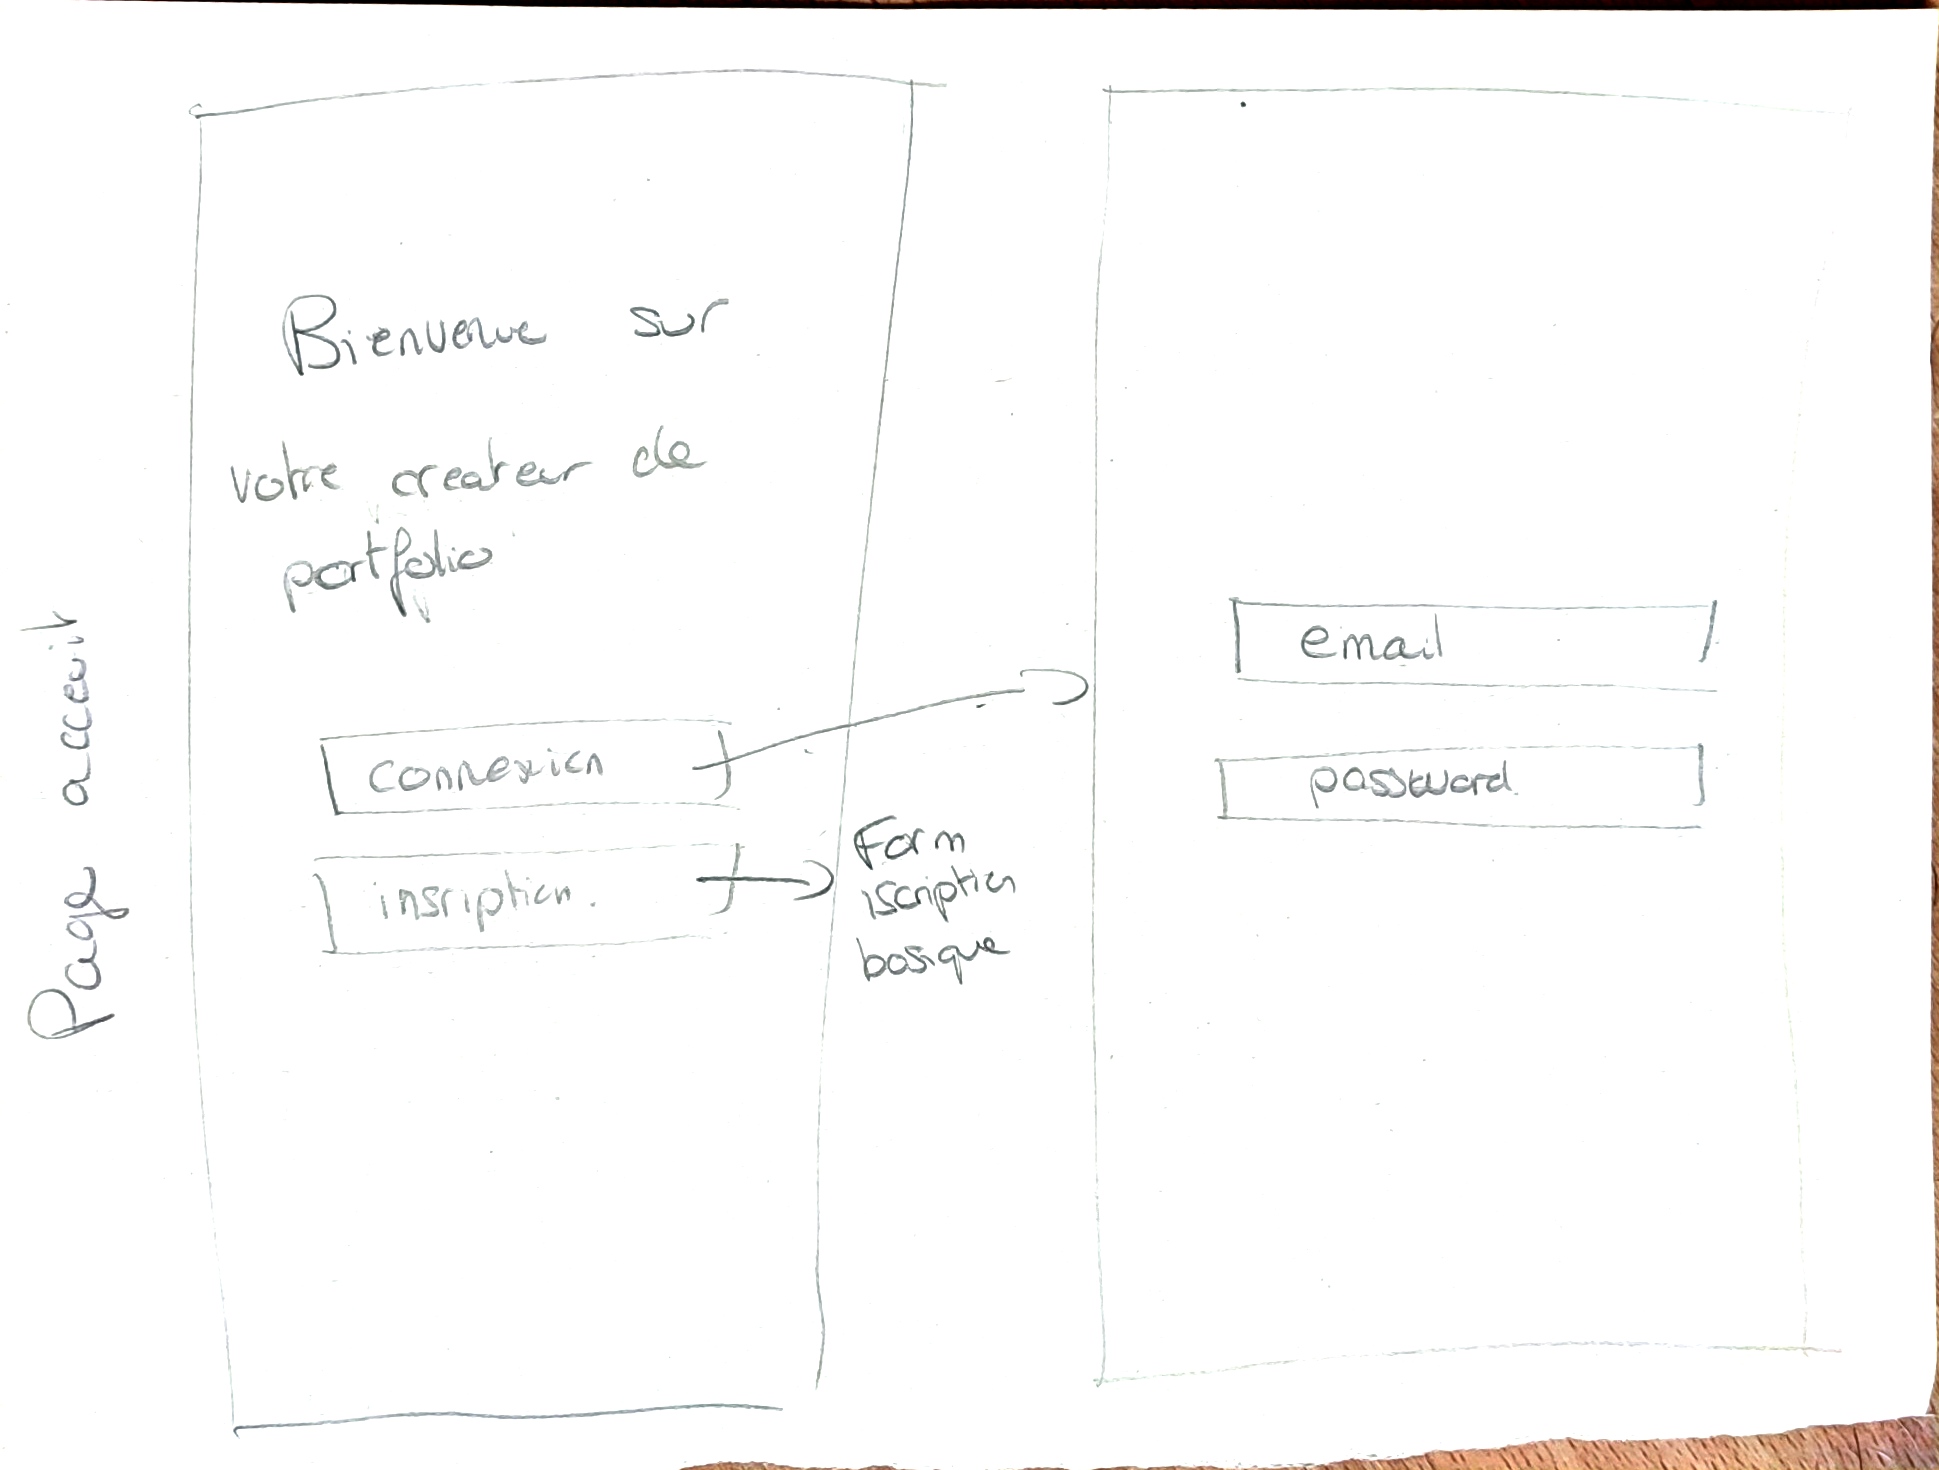 Page acceuil
Bienvenue sur
votre createur de
portfolio
connexion
insription.
Form
iscription
basique
email
password